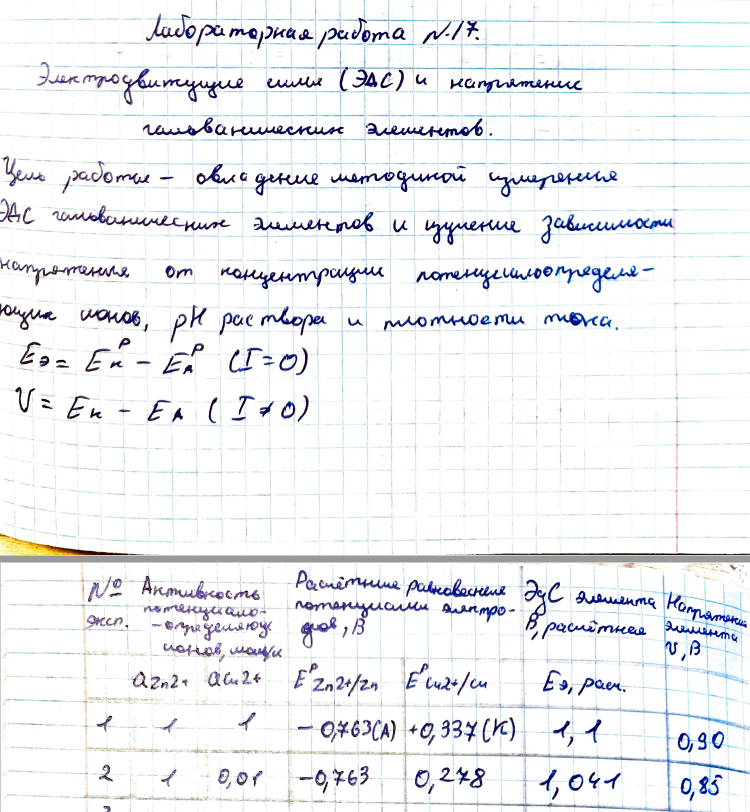 Лабораторная работа №17.
Электродвижущие силы (ЭДС) и напряжение
гальванических элементов.
Цель работы – овладение методикой измерения
ЭДС гальванических элементов и изучение зависимости
напряжения от концентрации потенциалоопределя-
ющих ионов, pH раствора и плотности тока.
Eэ = Eкᴾ – Eаᴾ (I=0)
V = Eк – Eа (I≠0)
№ эксп. Активность потенциало-определяющ ионов, моль/л Расчётные равновесные потенциалы электро-дов, В ЭДС элемента В, расчётная Напряжение элемента V, В
aZn2+ aCu2+ EᴾZn2+/Zn EᴾCu2+/Cu Eэ, расч.
1 1 1 –0,763(А) +0,337(К) 1,1 0,90
2 1 0,01 –0,763 0,278 1,041 0,85